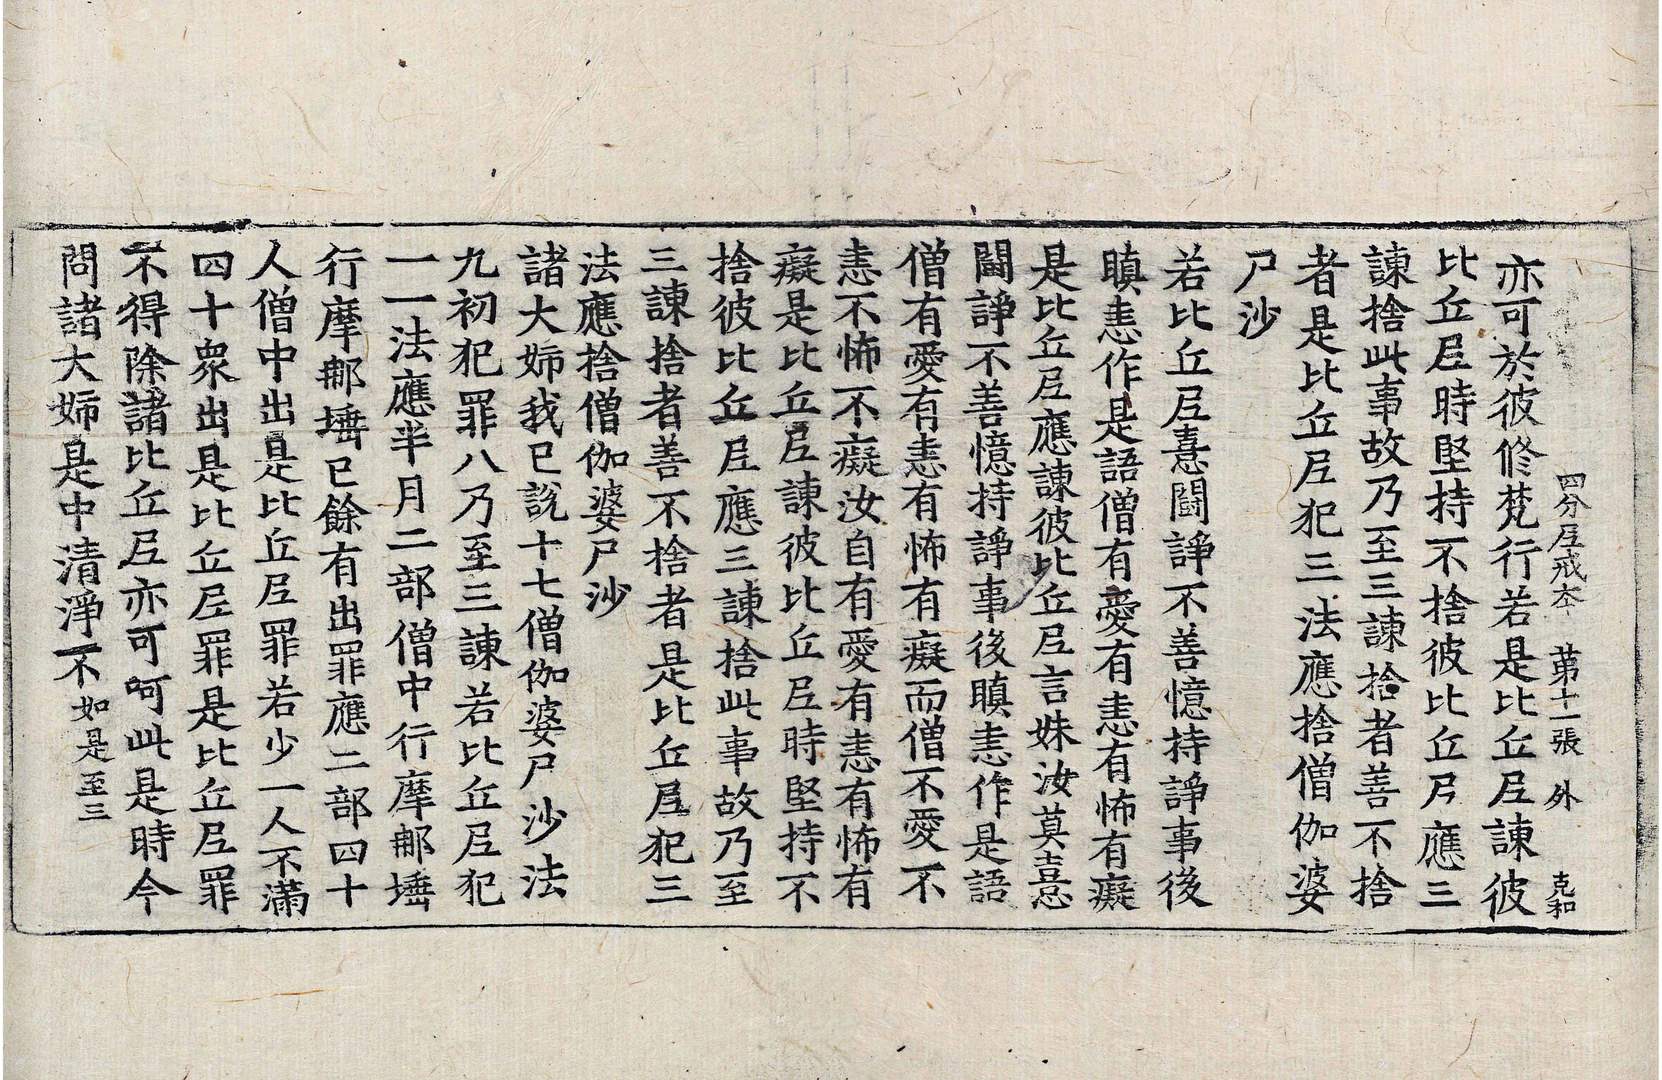 四分尼戒本 第十一張 外 克和
亦可於彼修梵行若是比丘尼諫彼
比丘尼時堅持不捨彼比丘尼應三
諫捨此事故乃至三諫捨者善不捨
者是比丘尼犯三法應捨僧伽婆
尸沙
若比丘尼憙鬪諍不善憶持諍事後
瞋恚作是語僧有愛有恚有怖有癡
是比丘尼應諫彼比丘尼言妹汝莫憙
鬪諍不善憶持諍事後瞋恚作是語
僧有愛有恚有怖有癡而僧不愛不
恚不怖不癡汝自有愛有恚有怖有
癡是比丘尼諫彼比丘尼時堅持不
捨彼比丘尼應三諫捨此事故乃至
三諫捨者善不捨者是比丘尼犯三
法應捨僧伽婆尸沙
諸大姉我已說十七僧伽婆尸沙法
九初犯罪八乃至三諫若比丘尼犯
一一法應半月二部僧中行摩那埵
行摩那埵已餘有出罪應二部四十
人僧中出是比丘尼罪若少一人不滿
四十衆出是比丘尼罪是比丘尼罪
不得除諸比丘尼亦可呵此是時今
問諸大姉是中清淨不如是至三